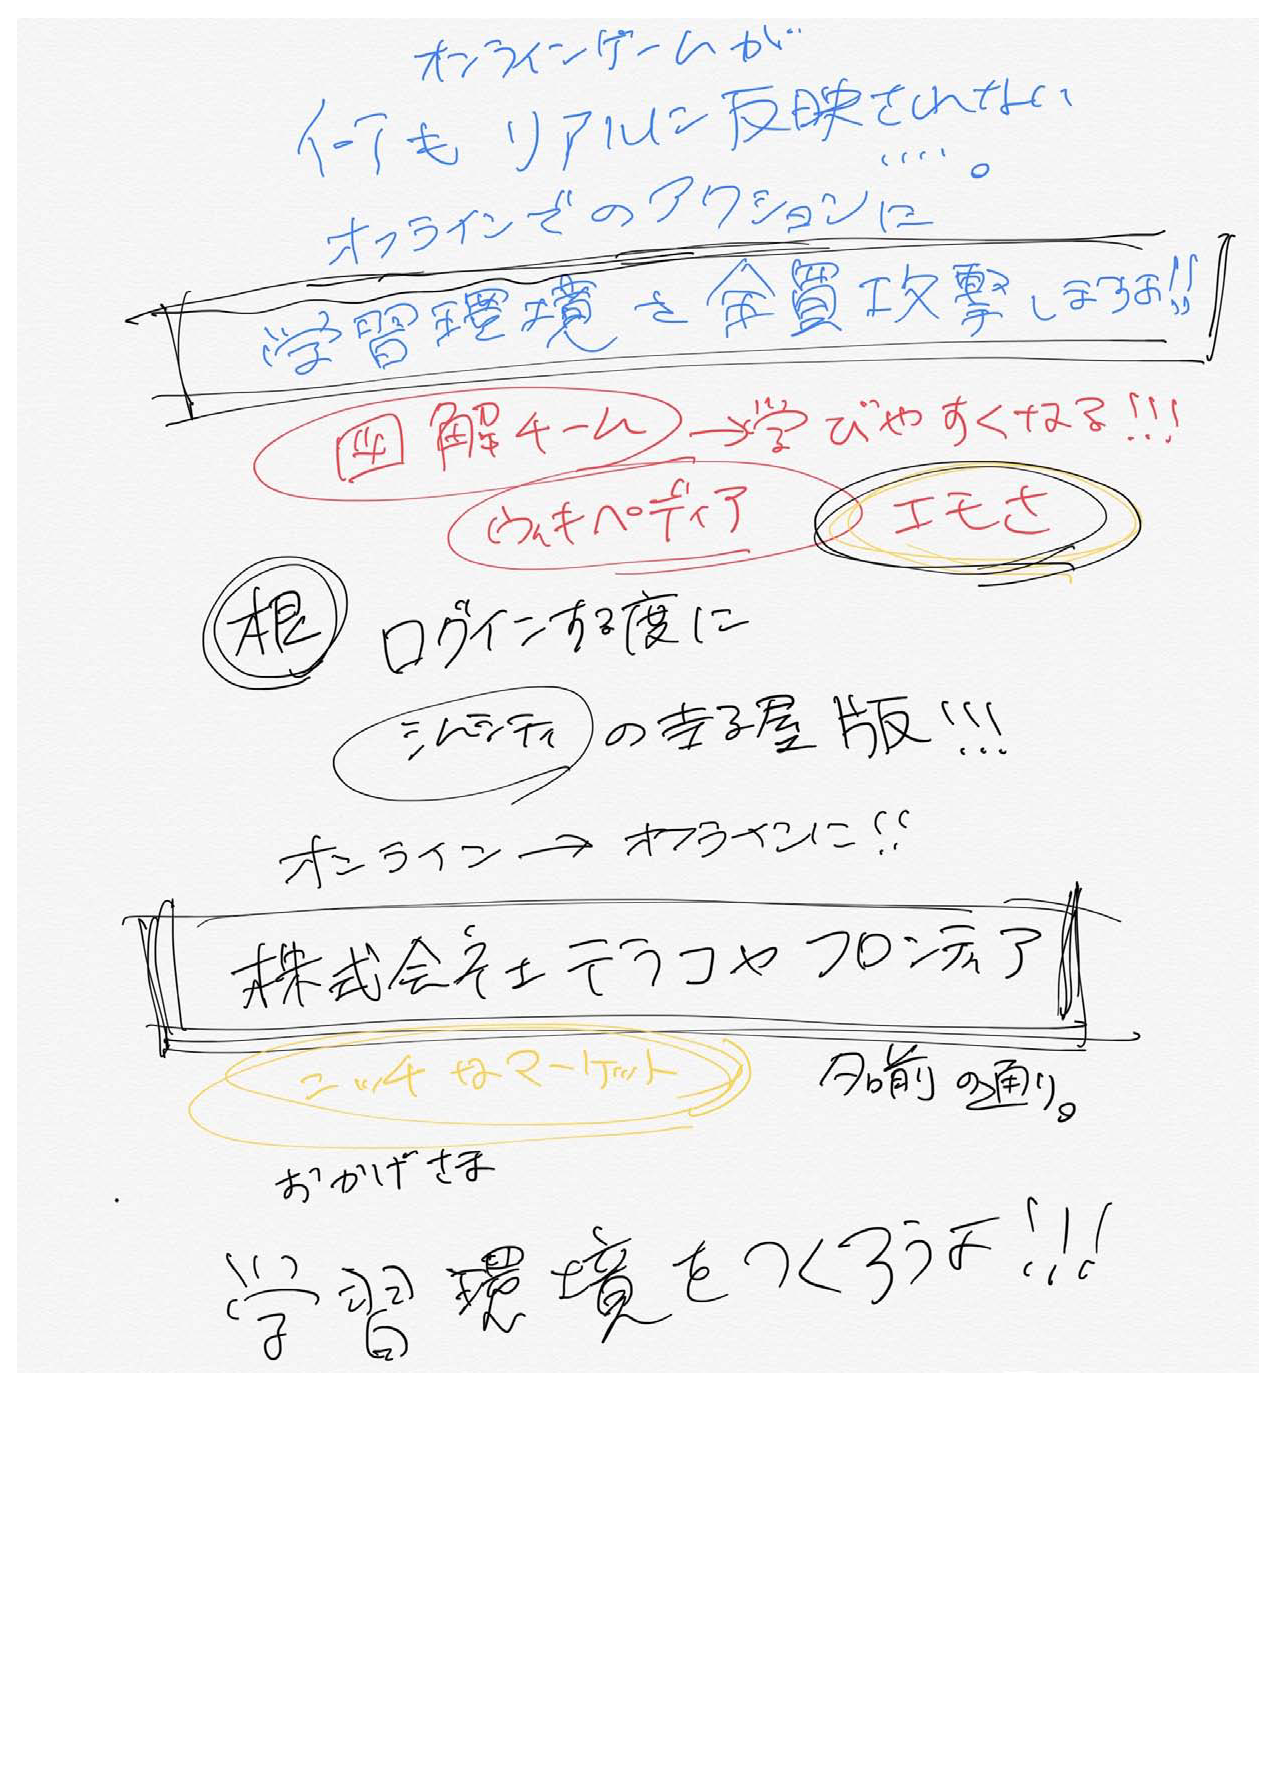 オンラインゲームが
何もリアルに反映されない
....。
オフラインでのアクションに
学習環境を 攻撃しますよ!!
図解チーム→学びやすくなる!!!
ウィキペディア エモさ
根 ログインする度に
シムシティの寺子屋版!!!
オンライン→オフラインに!!
株式会社テラコヤフロンティア
ニッチなマーケット 名前の通り。
おかげさま
学習環境をつくろうよ!!!